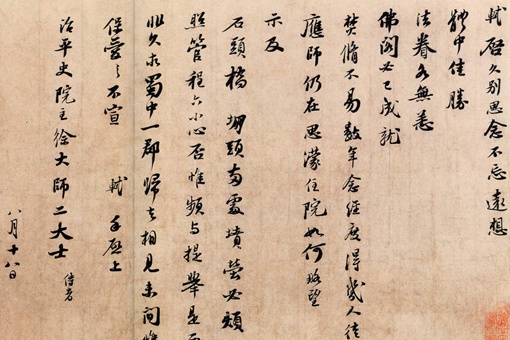 軾啓久別思念不忘遠想
體中佳勝
法眷各無恙
佛閣必已成就
焚脩不易數年念經度得幾人徒
應師仍在思濛住院如何略望
示及
石頭橋堋頭兩處墳塋必煩
照管程六小心否惟頻与提舉是
非久求蜀中一郡歸去相見未間惟
保愛之不宣 軾手啓上
治平史院主徐大師二大士 侍者
八月十八日